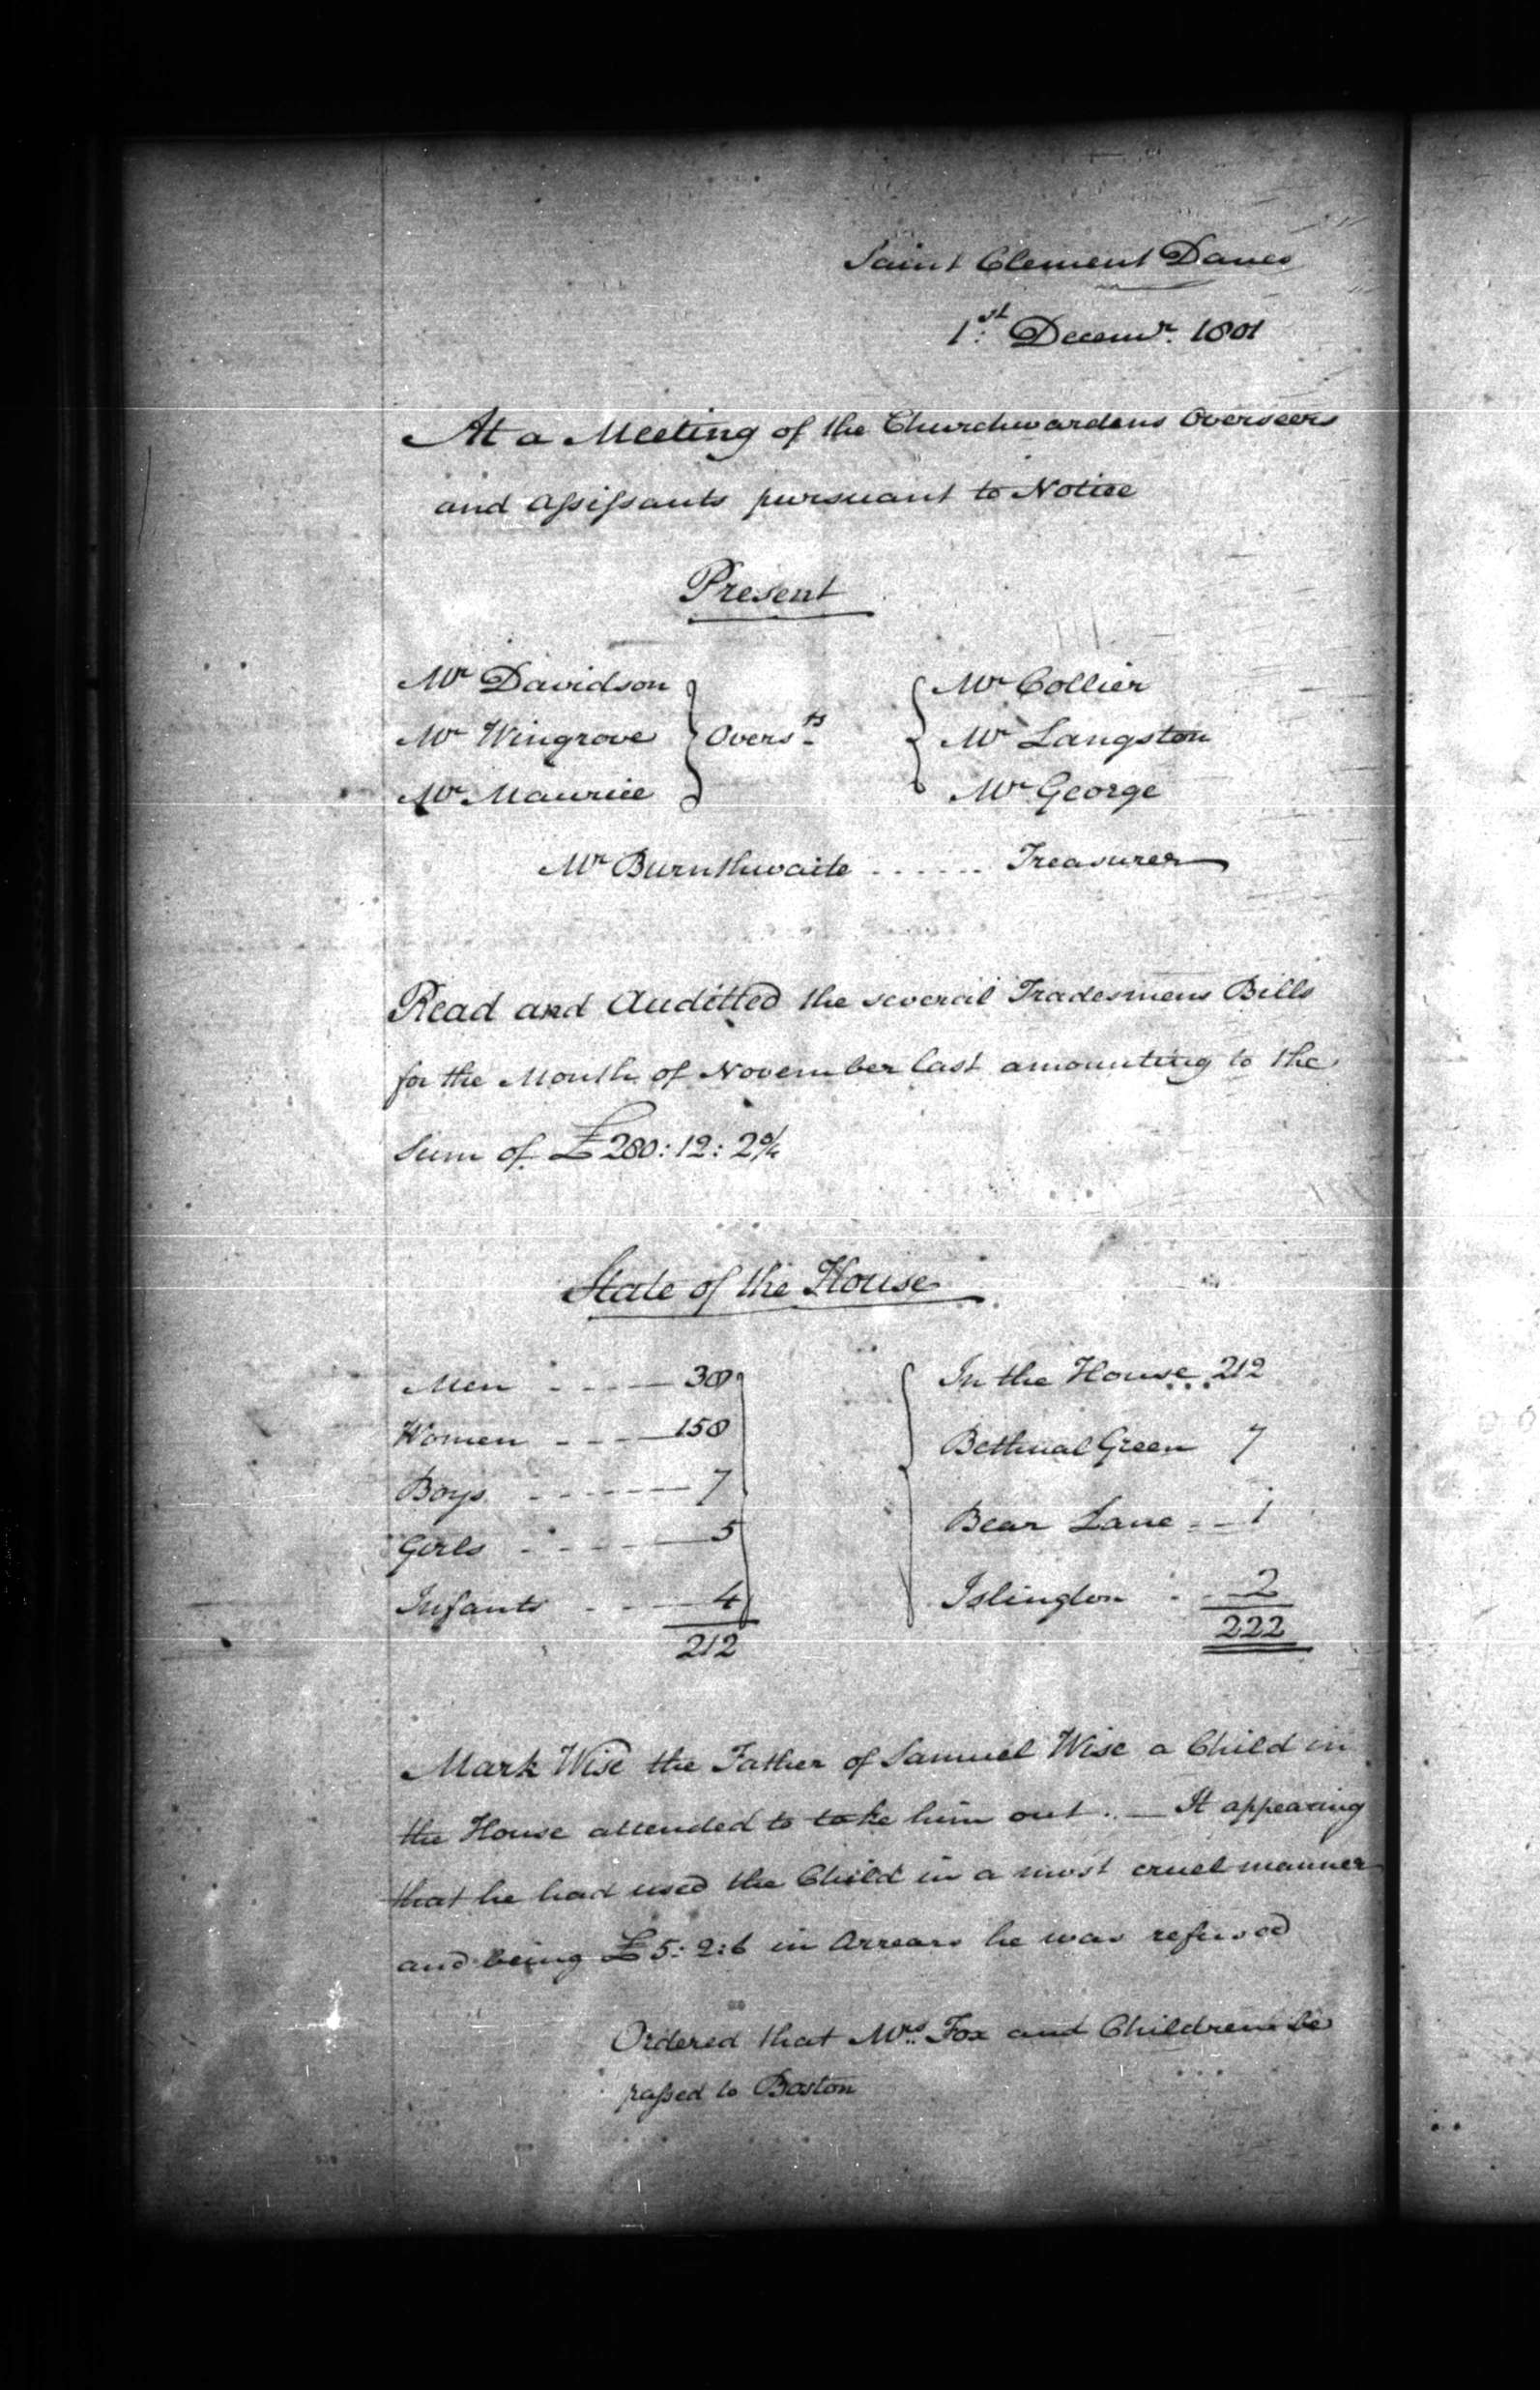 Saint Clement Danes
1st Decemr. 1801
At a Meeting of the Churchwardens Overseers
and Assissants pursuant to Notice
Present
Mr Davidson Mr Collier
Mr Wingrove Overs.rs Mr Langston
Mr Maurice Mr George
Mr Burnthwaite ...... Treasurer
Read and Auditted the several Tradesmens Bills
for the Month of November last amounting to the
Sum of £280:12:2¾
State of the House
Men 38 In the House 212
Women 158 Bethnal Green 7
Boys 7 Bear Lane 1
Girls 5 Islington 2
Infants 4 222
212
Mark Wise the Father of Samuel Wise a Child in
the House attended to take him out. — It appearing
that he had used the Child in a most cruel manner
and being £5:2:6 in Arrears he was refused
Ordered that Mrs. Fox and Children be
passed to Boston